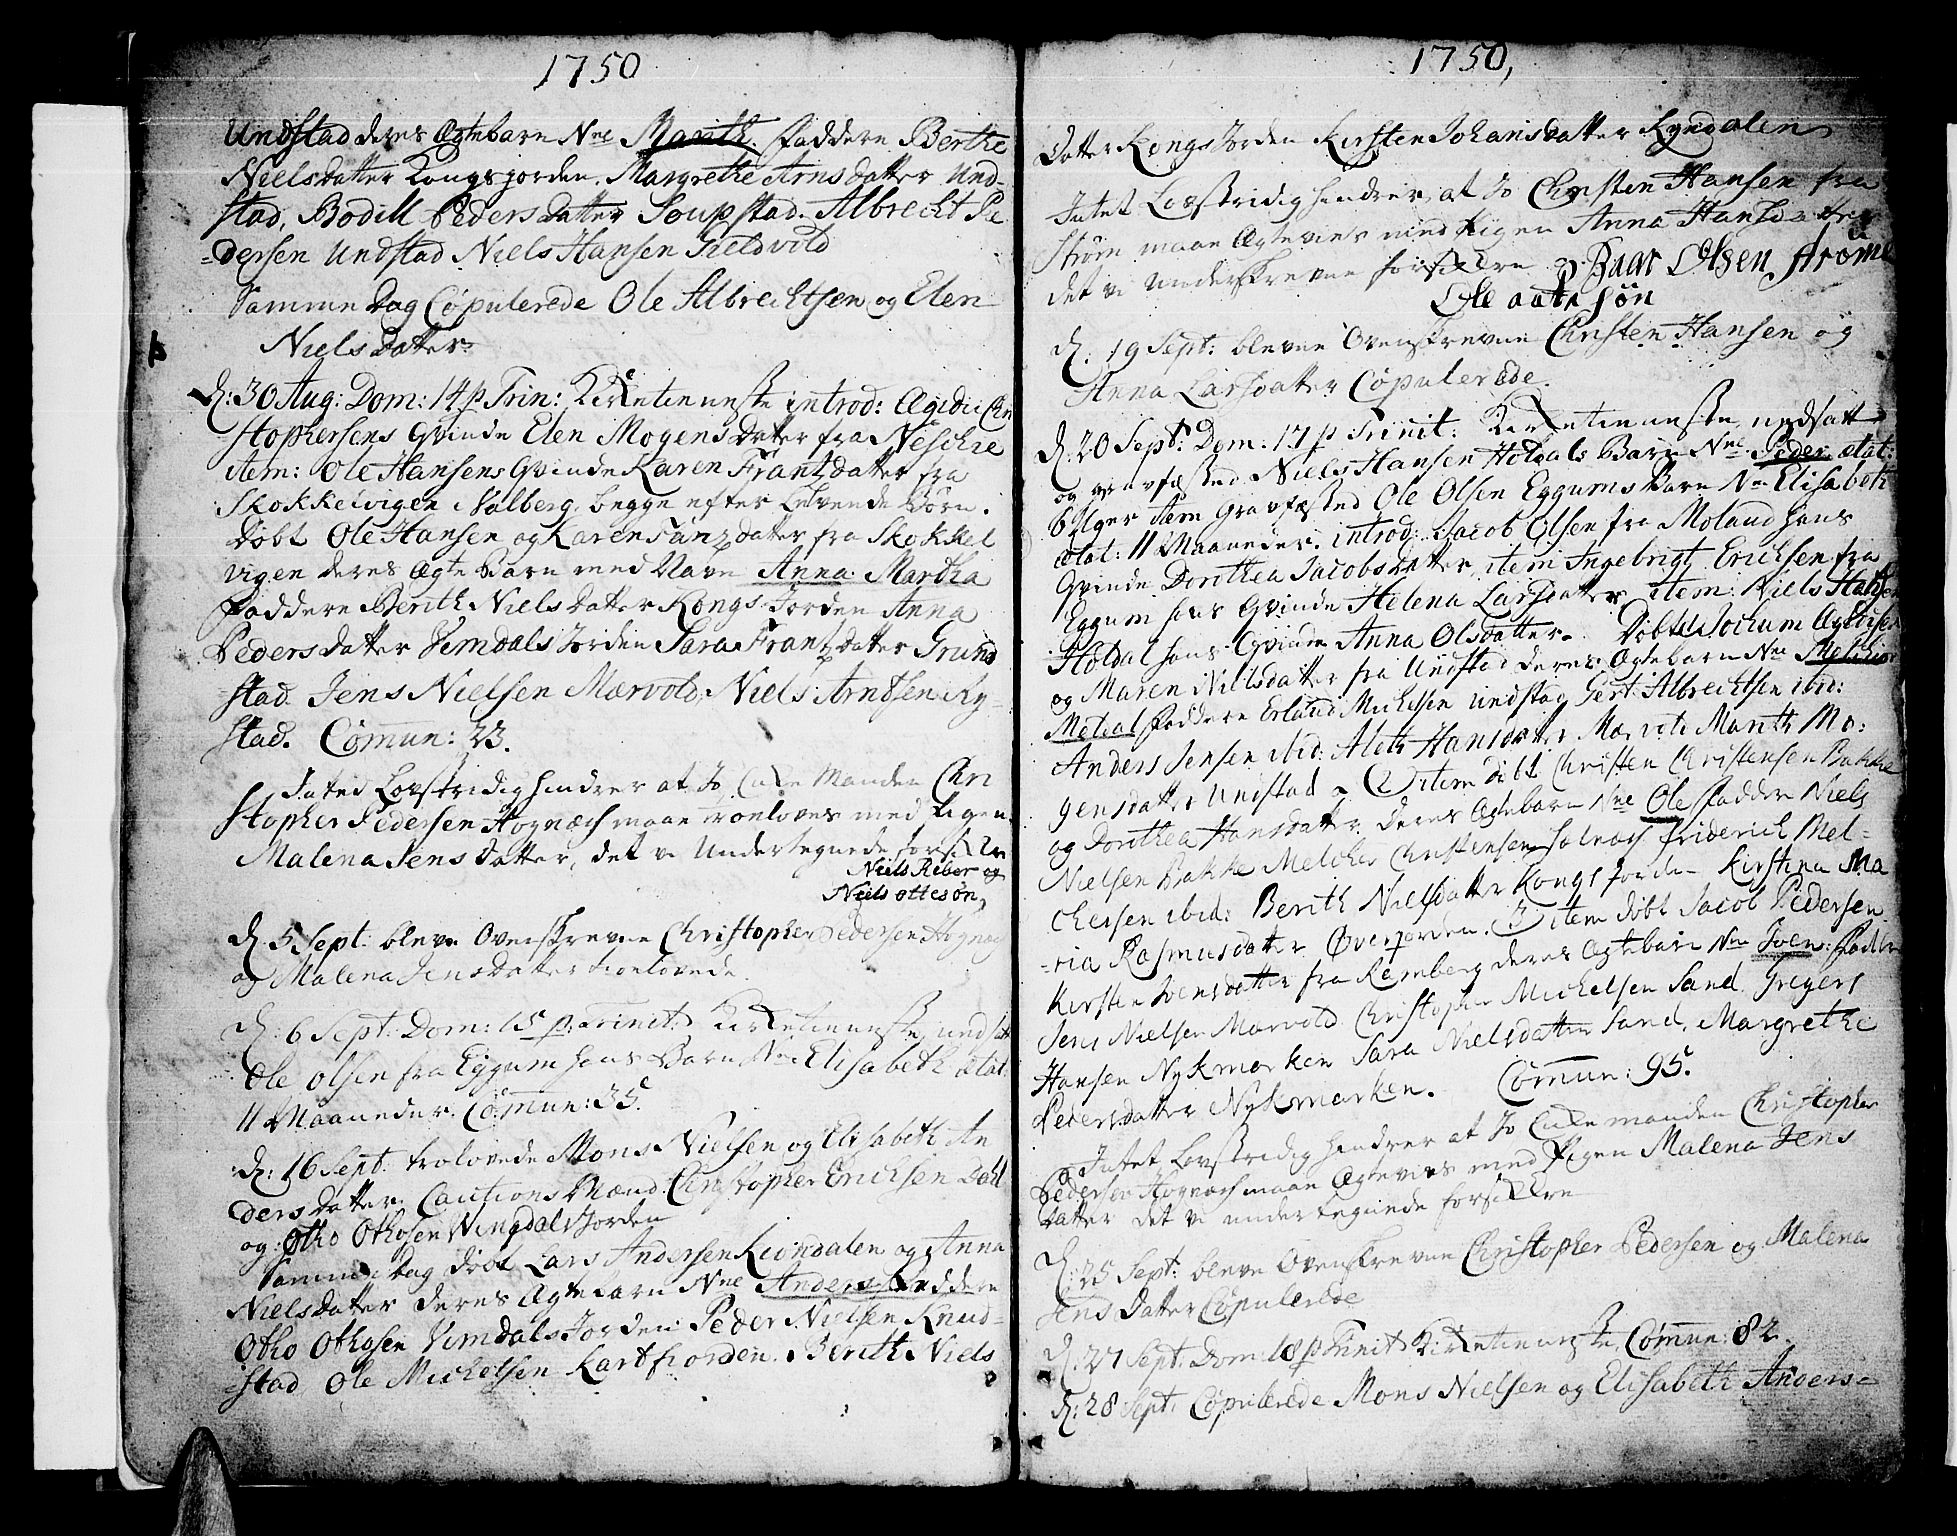 1750
Undstad deres Ægtebarn Nne Marith. Faddere Berthe
Nielsdatter Kongsjorden. Margrethe Arnsdatter Und-
stad, Bodill Pedersdatter Soupstad. Albrecht Pe
=dersen Undstad Niels Hansen Jieldvold
Samme Dag Copulerede Ole Albrechtsen og Elen
Nielsdatter
D: 30 Aug: Dom: 14 p Trin: Kirketieneste introd: Ægidii Chri
stophersens Qvinde Elen Mogensdatter fra Nesche
item: Ole Hansens Qvinde Karen Frantzdatter fra
Skokkelvigen Valberg, begge efter levende Børn.
Døbt Ole Hansen og Karen Frantzdatter fra Skokkel
vigen deres Ægte Barn med Navn Anna Martha
Faddere Berith Nielsdatter Kongs Jorden Anna
Pedersdatter Vemdals Jorden Sara Frantzdatter Grund
stad. Jens Nielsen Mærvold, Niels Arntsen Ry-
stad. Comun: 23.
Inted Lovstridig hindrer at Jo Enke Manden Chri
stopher Pedersen Hognæs maae troeloves med Pigen
Malena Jensdatter, det vi Undertegnede forsikkre
Niels Reber og
Niels ottesøn,
D. 5 Sept: bleve Ovenskrevne Christopher Pedersen Hognæs
og Malena Jensdatter troelovede
D: 6 Sept: Dom: 15 p: Trinit: Kirketieneste, nedsat
Ole Olsen fra Eggum hans Barn Nne Elisabeth ætat:
11 Maaneder. Comun: 35.
D: 16 Sept: trolovede Mons Nielsen og Elisabeth An
dersdatter. Cautions Mænd. Christopher Erichsen Dahl
og: Otho Othosen Vemdals Jorden
Samme dag døbt Lars Andersen og Anna
Nielsdatter deres Ægtebarn Nne Anders Faddere
Otho Othosen Vemdals Jorden Peder Nielsen Knud-
stad Ole Michelsen Kartfiorden. Berith Niels
1750,
Datter Kongs Jorden Kirsten Johansdatter Kyndalen
Intet Lovstridig hindrer, at Jo Christen Hansen fra
Strøm maae Ægtevies med Pigen Anna Hansdatter
det vi Underskrevne forsikkre Baar Olsen strøme
Ole aatesøn
D. 19 Sept: bleve Ovenskrevne Christen Hansen og
Anna Larsdatter Copulerede.
D. 20 Sept: Dom: 17 p Trinit: Kirketieneste, nedsatt
og gravfæsted Niels Hansen Holdals Barn Nne Peder ætat:
6 Uger item Gravfæsted Ole Olsen Eggums Barn Nne Elisabeth
ætat: 11 Maaneder. introd: Jacob Olsen fra Moland hans
Qvinde Dorothea Jacobsdatter item Ingebrigt Erichsen fra
Eggum hans Qvinde Helena Larsdatter item: Niels Hansen
Holdal hans Qvinde Anna Olsdatter. Døbt Jochum Ægidisen
og Maren Nielsdatter fra Undstad deres Ægtebarn Nne Melchior
Meldal Faddere Erlund Michelsen Undstad Gert Albrechtsen ibid:
Anders Jensen ibid: Aleth Hansdatter Mærvold Marith Mo:
gensdatter Undstad 2) item døbt Christen Christensen Bakke
og Dorothea Hansdatter deres Ægtebarn Nne Ole Faddere Niels
Nielsen Bakke Melcher Christensen Friderich Mel-
chersen ibid: Berith Nielsdatter Kongs Jorden Kirstina Ma
=ria Rasmusdatter Øverjorden. 3 item døbt Jacob Pedersen
Kirsten Ivensdatter fra Remberg deres Ægtebarn Nne Iven: Faddere
Jens Nielsen Marvold Christopher Michelsen Sand Gregers
Hansen Nykmarken Sara Nielsdatter Sand. Margrethe
Pedersdatter Nykmarken. Comun: 95.
Intet Lovstridig hindrer at Jo Enkemanden Christopher
Pedersen Hognæs maae Ægtevies med Pigen Malena Jens
Datter det vi undertegnede forsikkre
D: 25 Sept: bleve Ovenskrevne Christopher Pedersen og Malena
Jens Datter Copulerede
D: 27 Sept: Dom: 18 p Trinit Kirketieneste, Comun: 82.
D: 28 Sept: Copulerede Mons Nielsen og Elisabeth Anders=